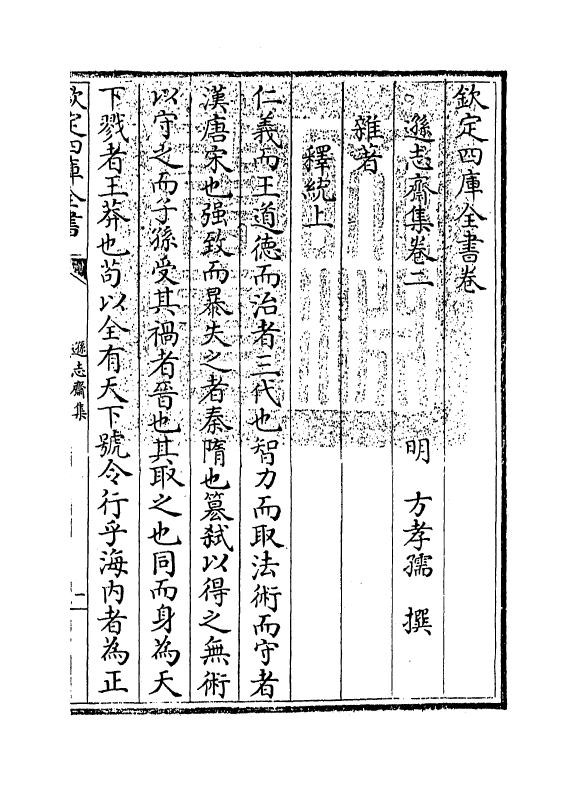 欽定四庫全書卷
遜志齋集卷二
明 方孝孺 撰
雜著
釋統上
仁義而王道德而治者三代也智力而取法術而守者
漢唐宋也强致而暴失之者秦隋也簒弑以得之無術
以守之而子孫受其禍者晉也其取之也同而身為天
下戮者王莽也苟以全有天下號令行乎海内者為正
欽定四庫全書
遜志齋集
一